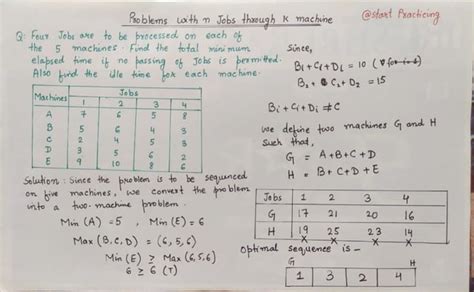 Problems with n Jobs through K machine
@start Practicing
Q: Four Jobs are to be processed on each of
the 5 machines. Find the total minimum
elapsed time if no passing of Jobs is permitted.
Also find the idle time for each machine.
Machines Jobs
1 2 3 4
A 7 6 5 8
B 5 6 4 3
C 2 4 5 3
D 3 5 6 2
E 9 10 8 6
Solution: Since the problem is to be sequenced
on five machines, we convert the problem
into a two machine problem.
Min (A) = 5 , Min (E) = 6
Max (B, C, D) = (6, 5, 6)
Min (E) ≥ Max (6, 5, 6)
6 ≥ 6 (T)
Since,
Bi + Ci + Di = 10
B2 + C2 + D2 = 15
Bi + Ci + Di ≠ C
we define two machines G and H
such that,
G = A+B+C+D
H = B+C+D+E
Jobs 1 2 3 4
G 17 21 20 16
H 19 25 23 14
x x x x
Optimal sequence is -
G H
1 3 2 4